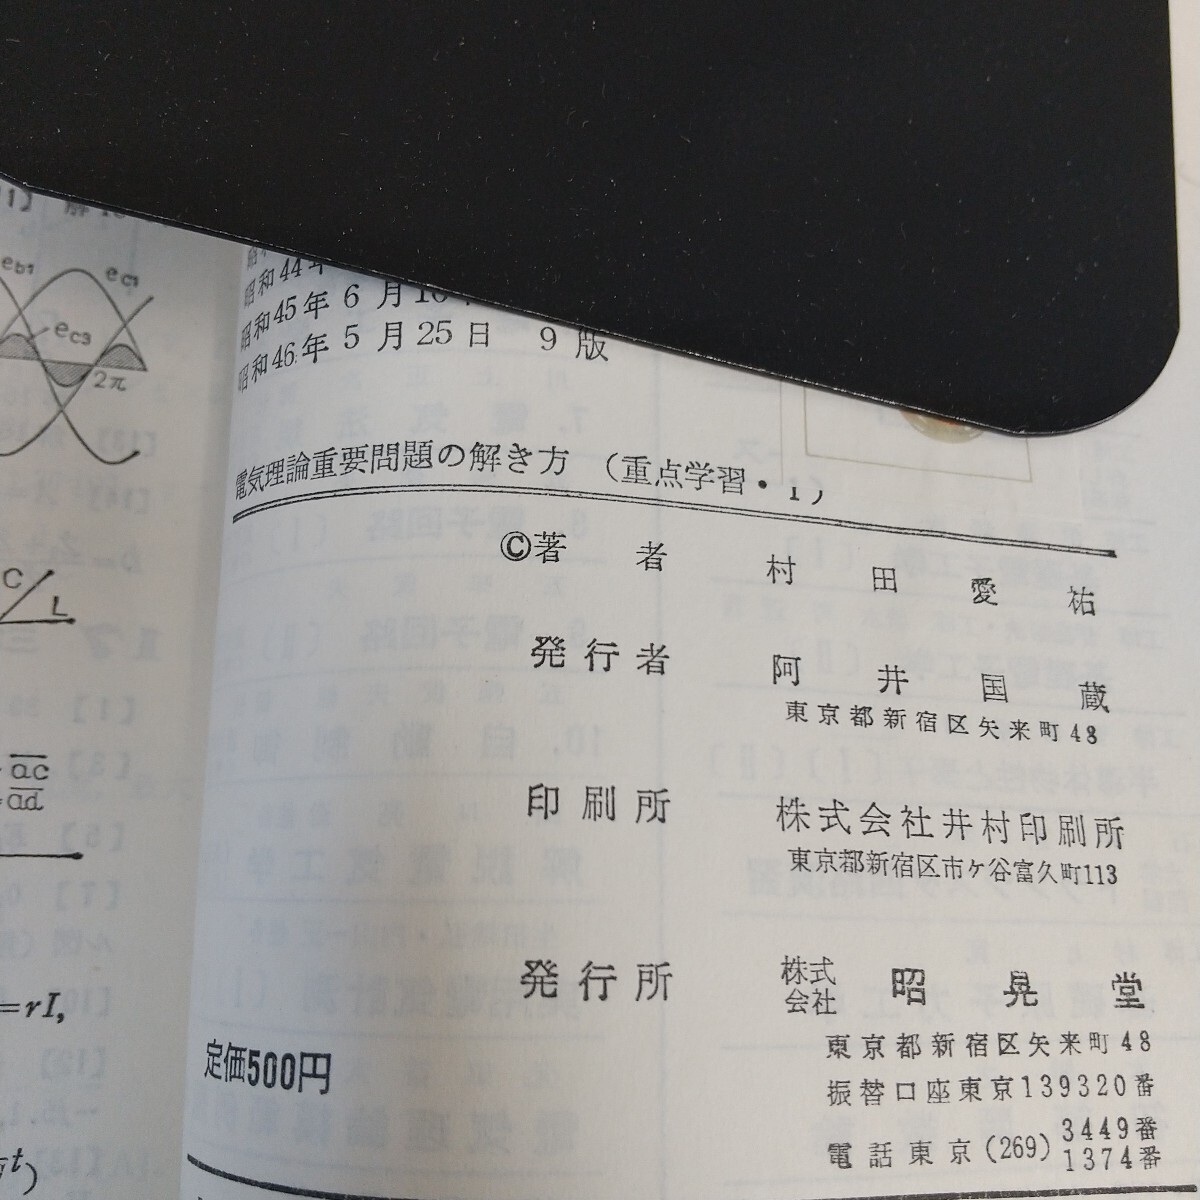 eb1
ec1
ec3
2π
C
L
ac
ad
=rI,
t)
昭和44年
昭和45年 6 月
昭和46年 5 月 25 日 9 版
電気理論重要問題の解き方 (重点学習・I)
©著 者 村 田 愛 祐
発行者 阿 井 国 蔵
東京都新宿区矢来町48
印刷所 株式会社井村印刷所
東京都新宿区市ケ谷富久町113
発行所 株式会社 昭 晃 堂
東京都新宿区矢来町48
振替口座東京139320番
電話東京(269)3449番
1374番
定価500円